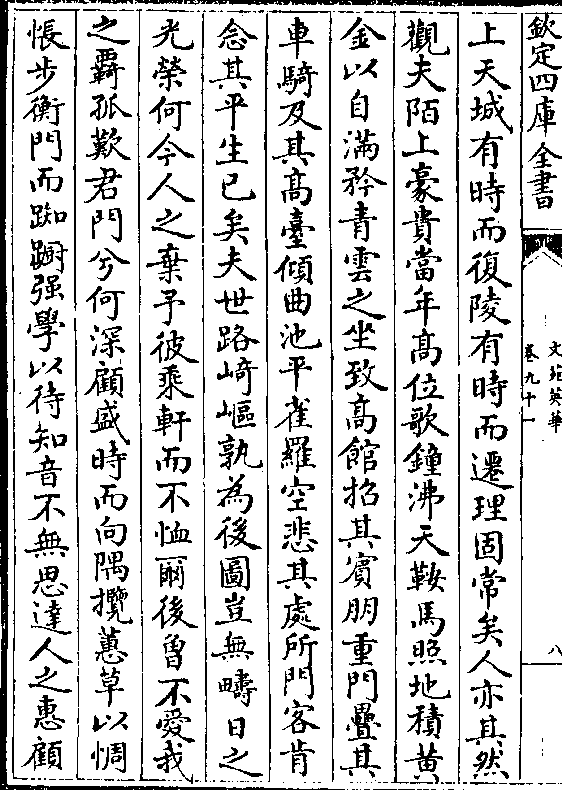 欽定四庫全書
文苑英華
卷九十一
八
上天城有時而復陵有時而遷理固常矣人亦其然
觀夫陌上豪貴當年高位歌鐘沸天鞍馬照地積黃
金以自滿矜青雲之坐致高館招其賓朋重門疊其
車騎及其高臺傾曲池平雀羅空悲其處所門客肯
念其平生已矣夫世路崎嶇孰為後圖豈無疇日之
光榮何今人之棄予彼乘軒而不恤爾後曽不愛我
之覊孤歎君門兮何深顧盛時而向隅攬蕙草以惆
悵步衡門而踟蹰强學以待知音不無思達人之惠顧